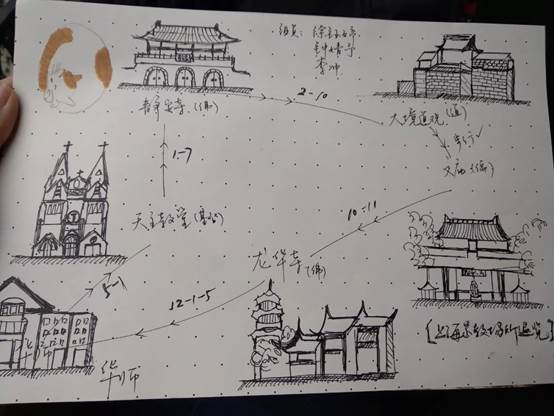 组员：徐
李冲
静安寺（佛）
2-10
大境道观（道）
步行
文庙（儒）
1-7
天主教堂（基）
10-11
龙华寺（佛）
12-1-5
5-1
华师
华师
［上海宗教场所游览］